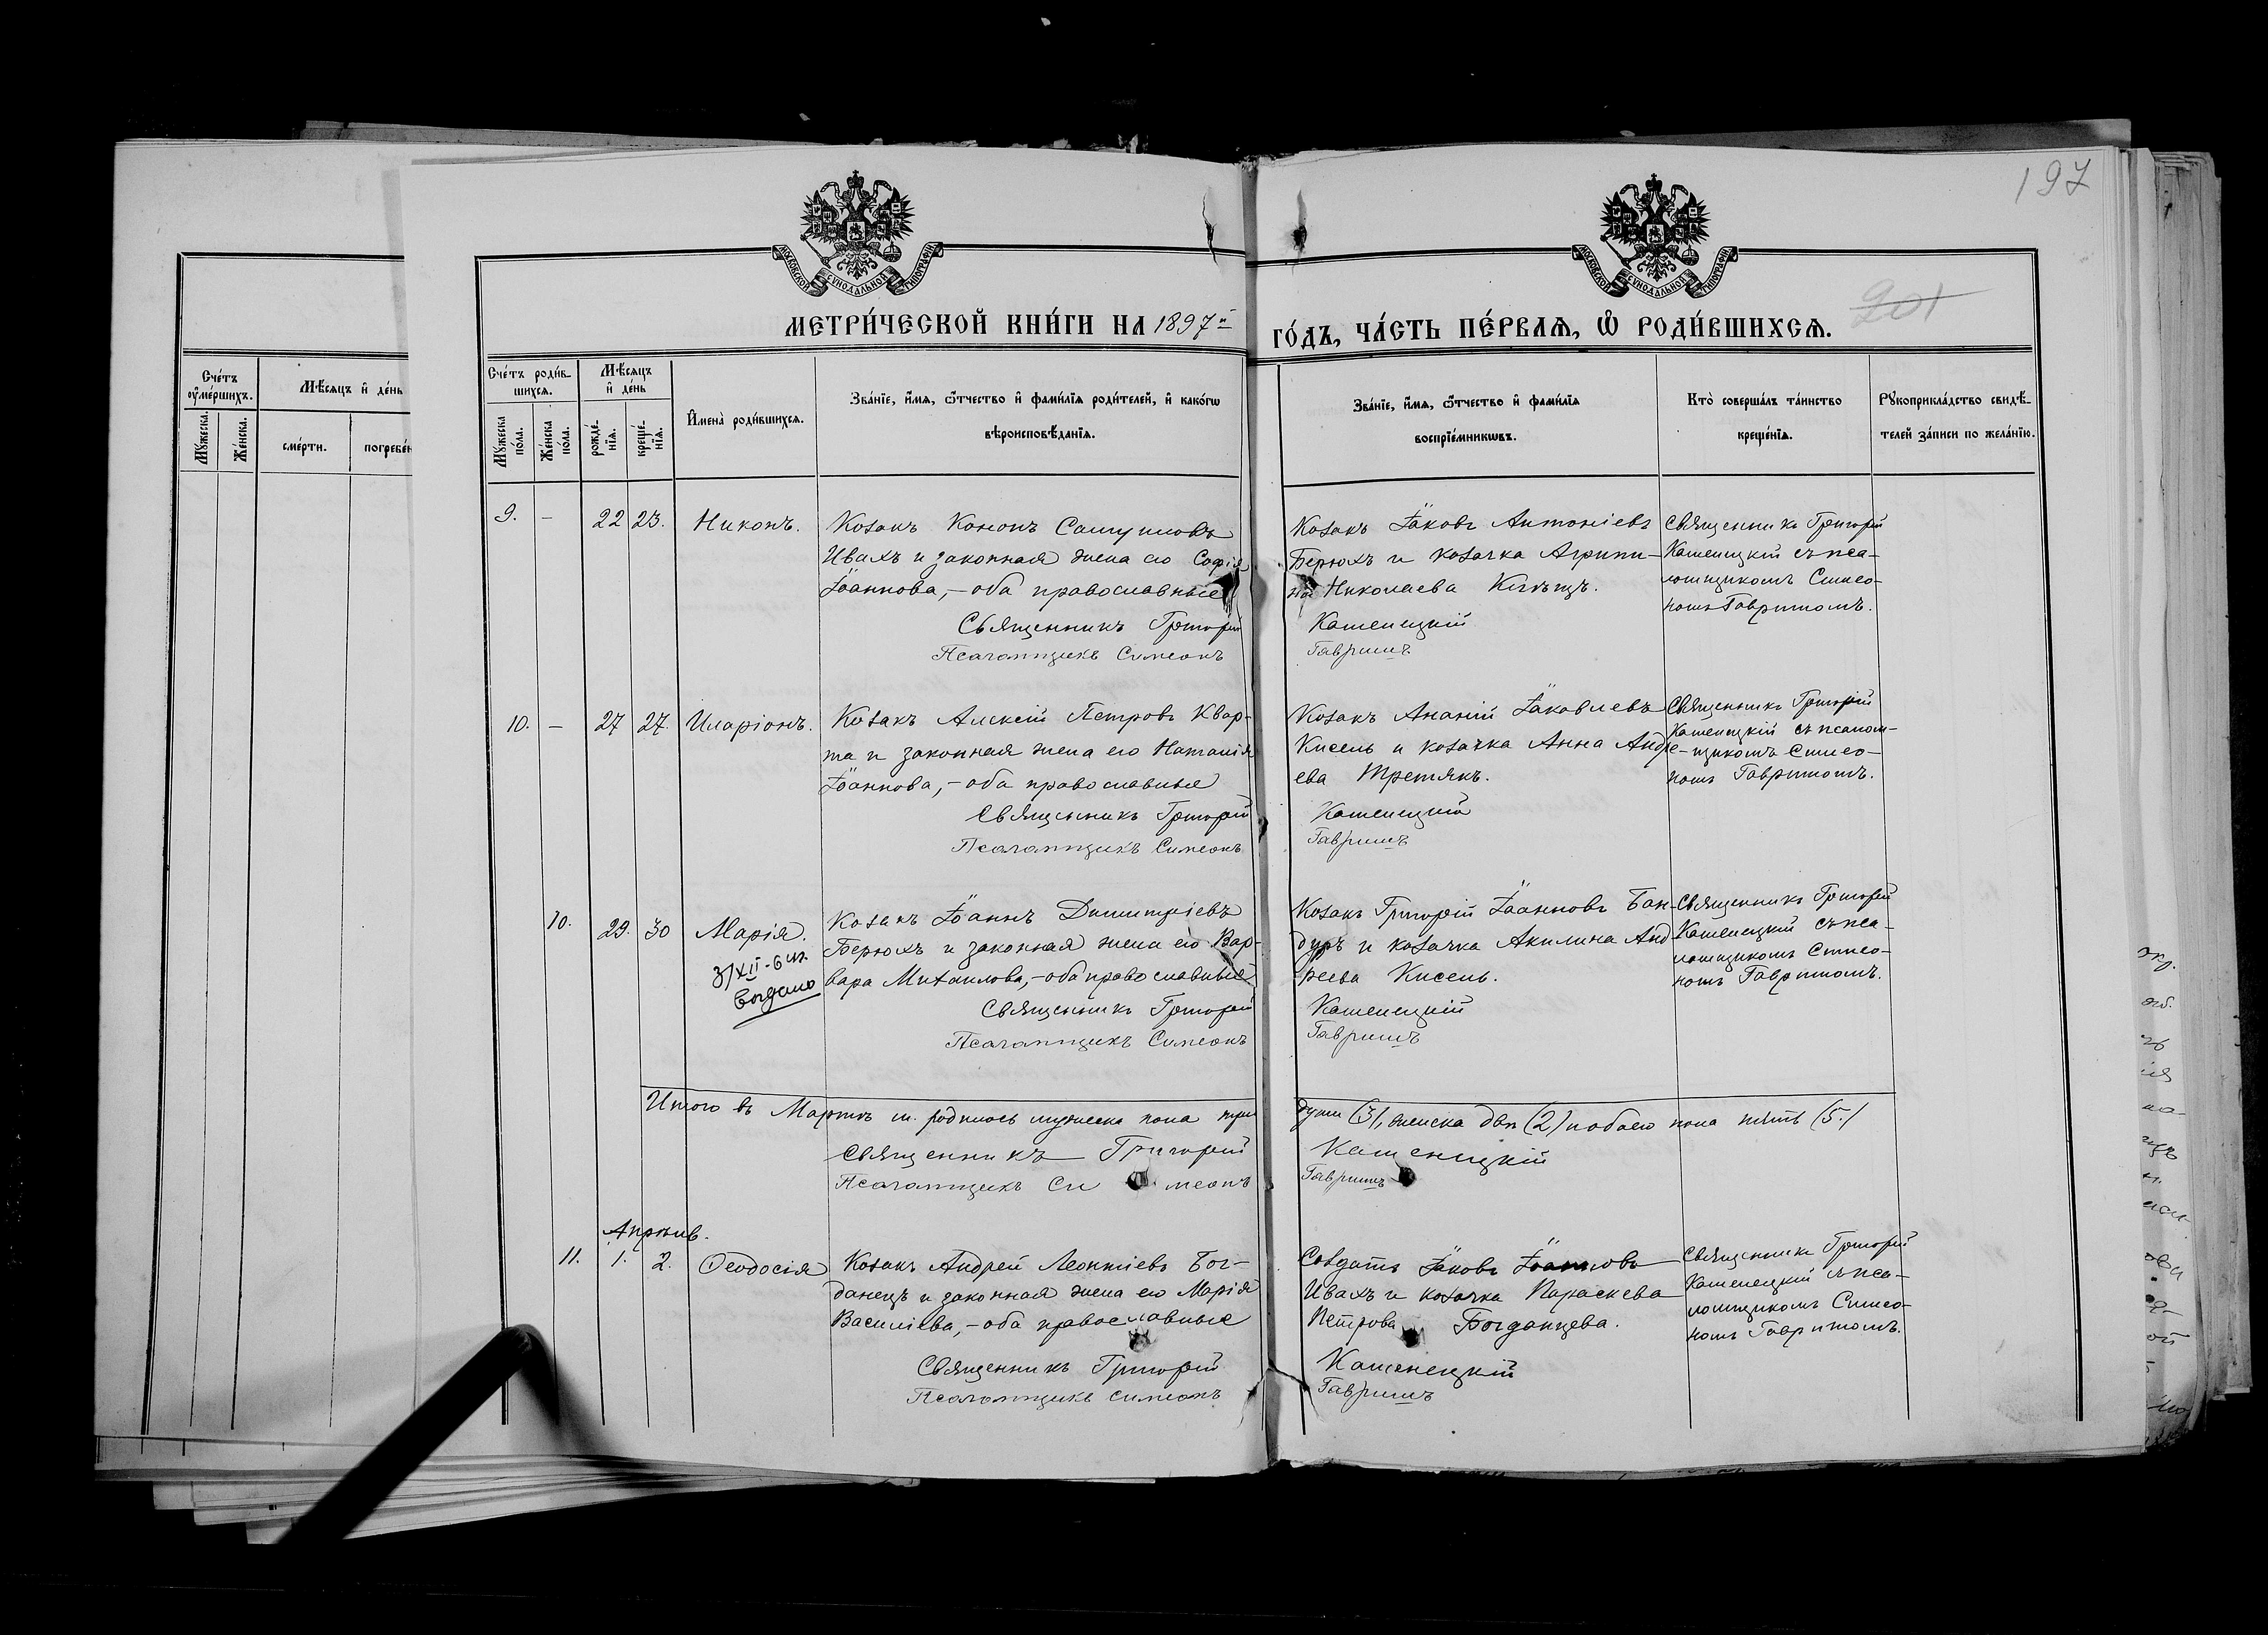 197
201
МОСКОВСКОЙ СѴНОДАЛЬНОЙ ТИПОГРАФІИ
МОСКОВСКОЙ СѴНОДАЛЬНОЙ ТИПОГРАФІИ
МЕТРИ́ЧЕСКОЙ КНИ́ГИ НА 1897й
ГО́ДЪ, ЧА́СТЬ ПЕ́РВАѦ, Ѡ҆ РОДИ́ВШИХСѦ.
Сче́тъ ᲂу҆ме́ршихъ.
Мꙋ́жеска.
Же́нска.
Мѣ́сѧцъ и҆ де́нь
сме́рти.
погребе́н
Сче́тъ роди́в-
шихсѧ.
Мꙋ́жеска по́ла.
Же́нска по́ла.
Мѣ́сѧцъ
и҆ де́нь
рожде́-
нїѧ.
креще́-
нїѧ.
И҆мена̀ роди́вшихсѧ.
Зва́нїе, и҆́мѧ, ѻ҆́тчество и҆ фами́лїѧ роди́телей, и҆ како́гѡ
вѣроисповѣ́данїѧ.
Зва́нїе, и҆́мѧ, ѻ҆́тчество и҆ фами́лїѧ
воспрїе́мникѡвъ.
Кто̀ соверша́лъ та́инство
креще́нїѧ.
Рꙋкоприкла́дство свидѣ́-
телей за́писи по жела́нїю.
9. – 22 23. Никонъ.
Козакъ Кононъ Самуиловъ
Ивахъ и законная жена его Софія
Іоаннова, – оба православные
Священникъ Григорій
Псаломщикъ Симеонъ
Козакъ Іаковъ Антоніевъ
Берюхъ и козачка Агрипи-
на Николаева
Каменецкій
Гавришъ
Священникъ Григорій
Каменецкій съ пса-
ломщикомъ Симео-
номъ Гавришомъ.
10. – 27 27. Иларіонъ.
Козакъ Алексій Петровъ Квар-
та и законная жена его Наталія
Іоаннова, – оба православные
Священникъ Григорій
Псаломщикъ Симеонъ
Козакъ Ананій Іаковлевъ
Кисель и козачка Анна Андре-
ева Третякъ.
Каменецкій
Гавришъ
Священникъ Григорій
Каменецкій съ псалом-
щикомъ Симео-
номъ Гавришомъ.
10. 29. 30 Марія.
3/XII-6
выдано
Козакъ Іоаннъ Димитріевъ
Берюхъ и законная жена его Вар-
вара Михаилова, – оба православные
Священникъ Григорій
Псаломщикъ Симеонъ
Козакъ Григорій Іоанновъ Бан-
дуръ и козачка Акилина Анд
реева Кисель.
Каменецкій
Гавришъ
Священникъ Григорій
Каменецкій съ пса-
ломщикомъ Симео-
номъ Гавришомъ.
Итого въ Мартѣ м. родилось мужеска пола три
души (3), женска двѣ (2) и обоего пола пять (5.)
Священникъ Григорій
Каменецкій
Псаломщикъ Симеонъ
Гавришъ
Апрѣль.
11. 1. 2. Ѳеодосія
Козакъ Андрей Леонтіевъ Бог-
данецъ и законная жена его Марія
Василіева, – оба православные
Священникъ Григорій
Псаломщикъ Симеонъ
Солдатъ Іаковъ Іоанновъ
Ивахъ и козачка Параскева
Петрова Богданцева.
Каменецкій
Гавришъ
Священникъ Григорій
Каменецкій съ пса-
ломщикомъ Симео-
номъ Гавришомъ.